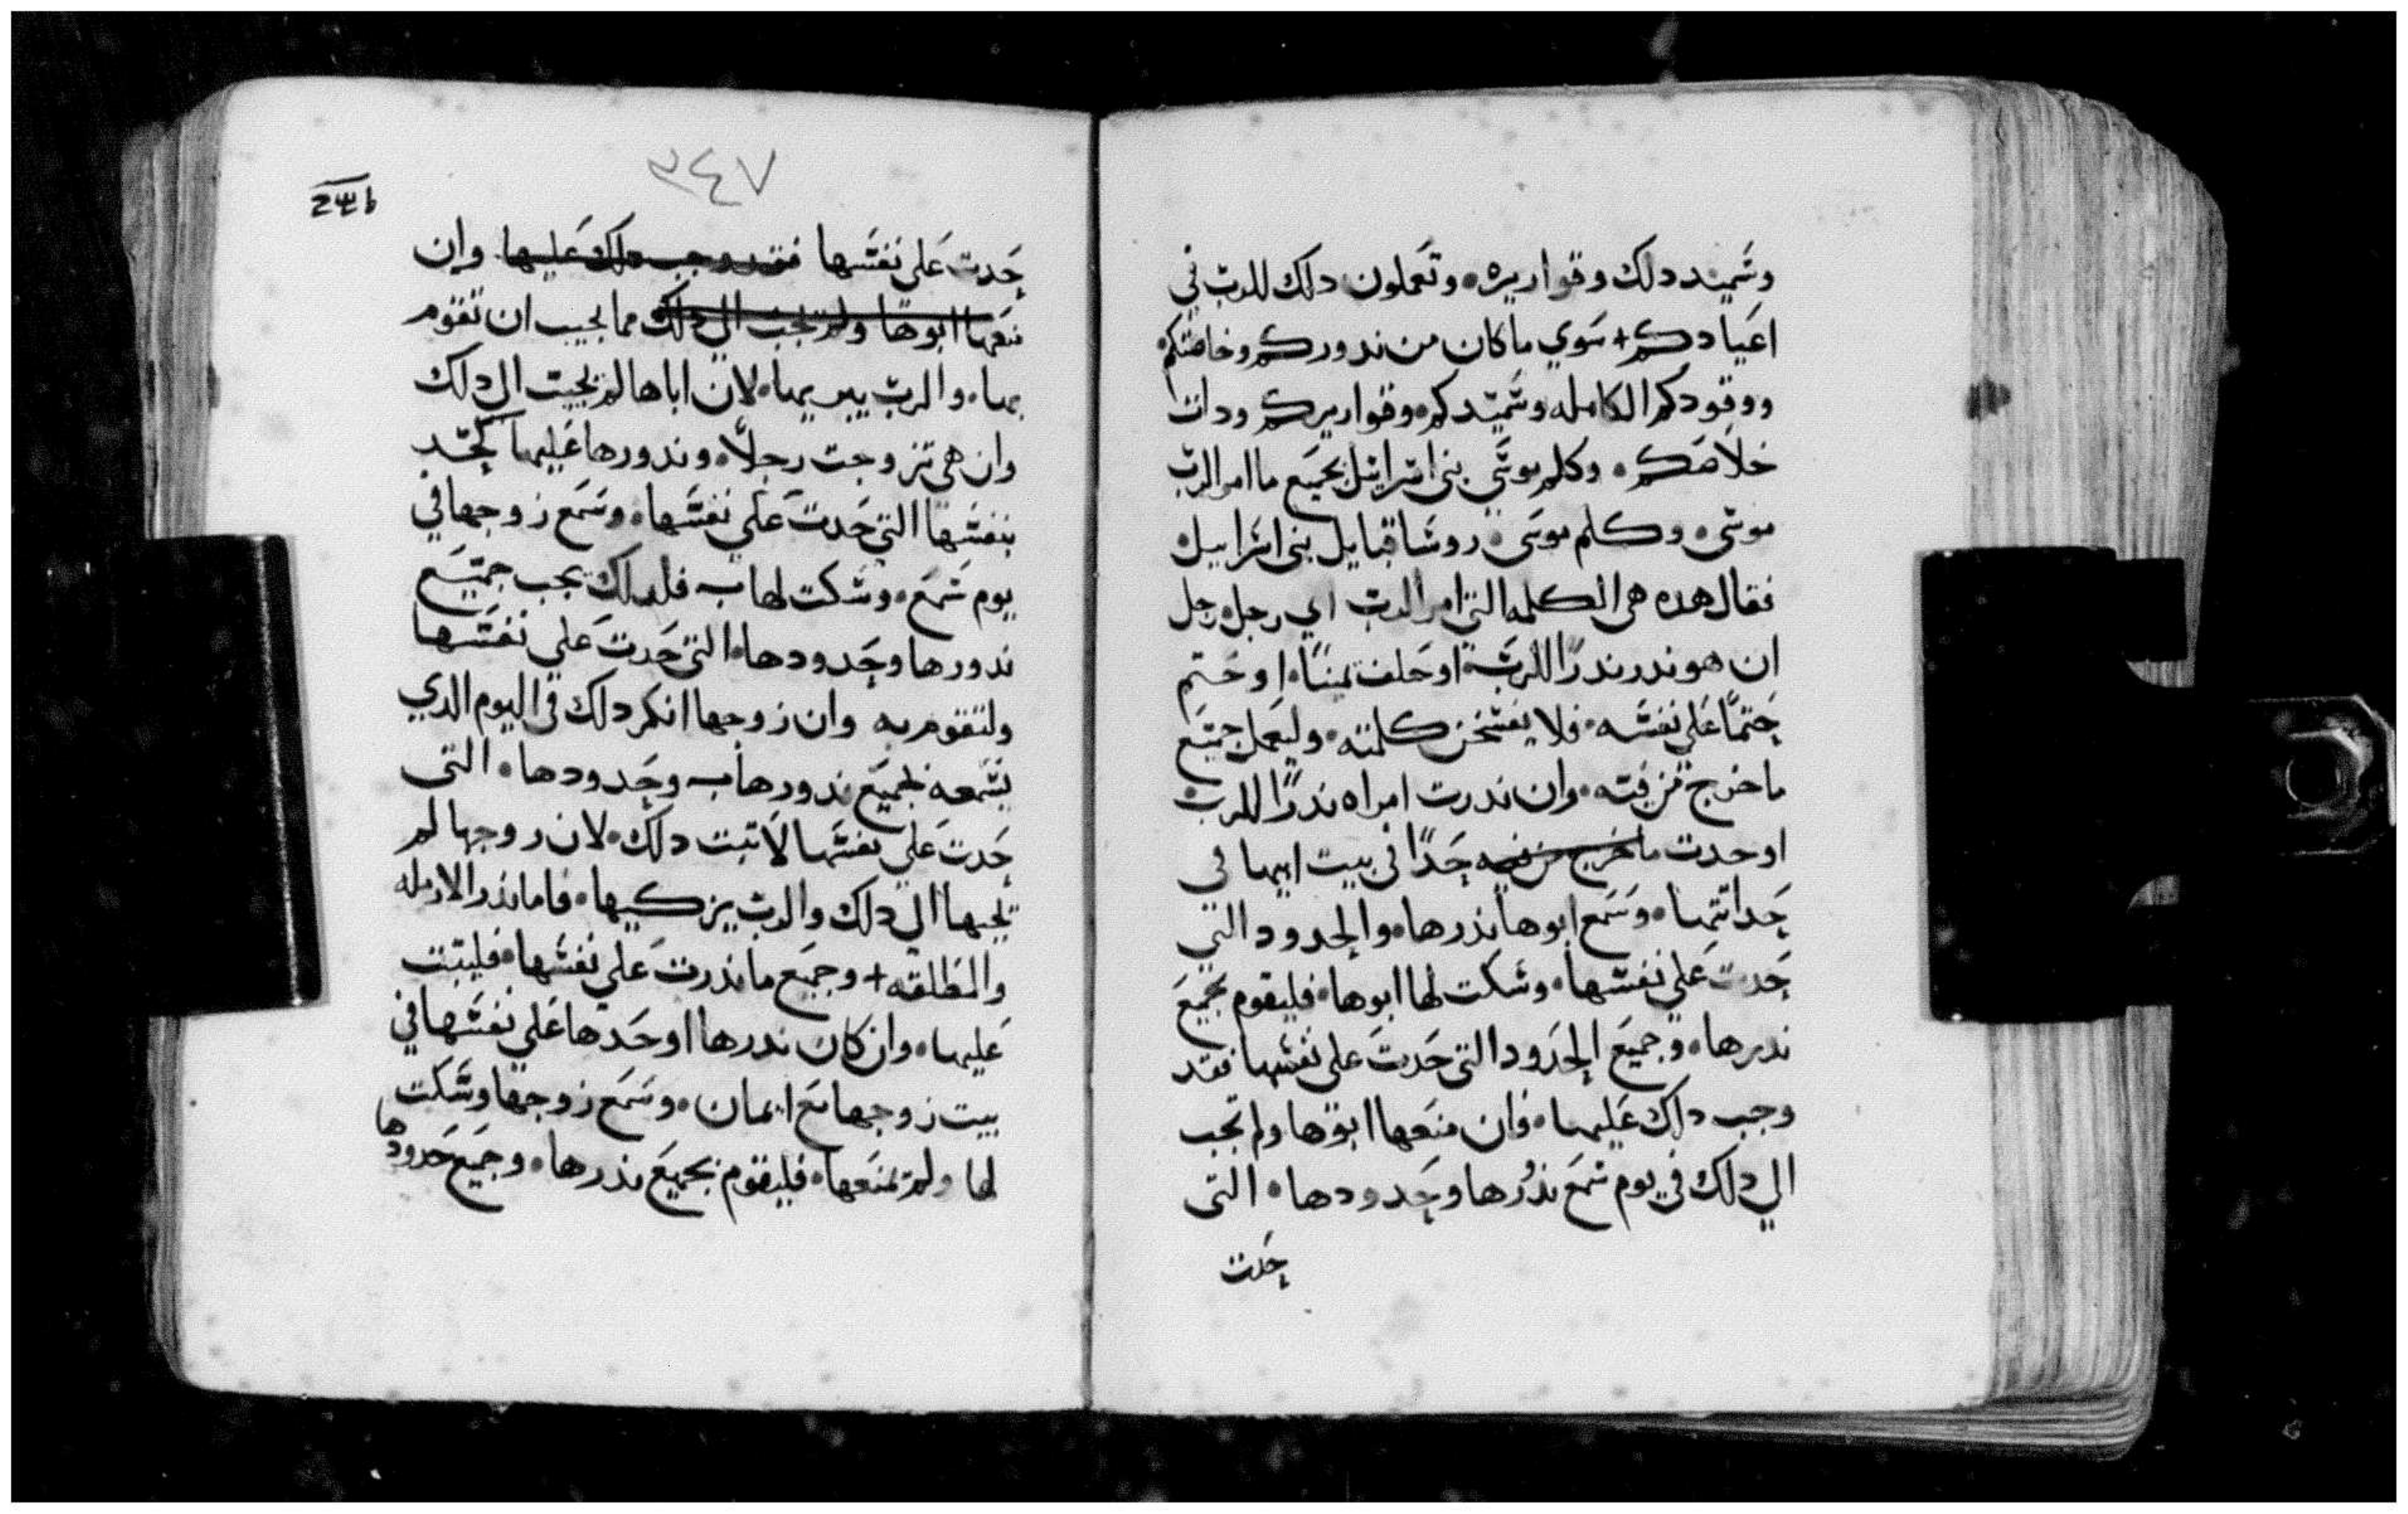 وسميد دلك وقواريره • وتعملون دلك للرب في
اعيادكم + سوي ما كان من ندوركم وخاصتكم
ووقودكم الكامله وسميدكم • وقواريركم ودات
خلاصكم • وكلم موسي بني اسراييل بجميع ما امر الرب
موسي • وكلم موسي • روسا قبايل بني اسراييل
فقال هده هي الكلمه التي امر الرب اي رجل رجل
ان هو ندر ندرًا للرب • او حلف يمينًا • او حتم
حتمًا علي نفسه • فلا يفسخن كلمته • وليعمل جميع
ما خرج من فيه • وان ندرت امراه ندرًا للرب •
او حدت ما خرج من فيه حدًا في بيت ابيها في
حداثتها • وسمع ابوها نذرها • والحدود التي
حدت علي نفسها • وسكت لها ابوها • فليقوم بجميع
ندرها • وجميع الحدود التي حدت علي نفسها فقد
وجب دلك عليها • وان منعها ابوها ولم تجب
الي دلك في يوم سمع نذرها وحدودها • التي
حدت
٣٤٧
حدت علي نفسها فقد وجب دلك عليها وان
منعها ابوها ولم تجب الي دلك مما يجيب ان تقوم
بها • والرب يبريها • لان اباها لم يجيب الي دلك
وان هي تزوجت رجلاً • وندورها عليها كحد
بنفسها التي حدت علي نفسها • وسمع زوجها في
يوم سمع • وسكت لها فلدلك يجب جميع
ندورها وحدودها • التي حدت علي نفسها
ولتقوم به وان زوجها انكر دلك في اليوم الدي
يسمعه فجميع ندورها وحدودها • التي
حدت علي نفسها لا تبت دلك • لان زوجها لم
يجيبها الي دلك والرب يزكيها • فاما نذر الارمله
والمطلقه + وجميع ما نذرت علي نفسها • فليتبت
عليها • وان كان ندرها او حدها علي نفسها في
بيت زوجها مع ايمان • وسمع زوجها وسكت
لها ولم يمنعها • فليقوم بجميع نذرها • وجميع حدودها